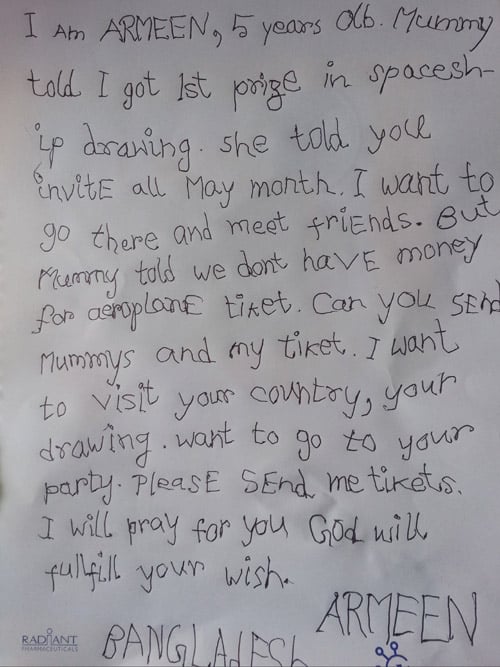 I Am ARMEEN, 5 years Olb. Mummy
told I got 1st prize in spacesh-
ip drawing. she told you
invitE all May month. I want to
go there and meet friEnds. But
Mummy told we dont haVE money
for aeroplanE tiket. Can you SEnd
Mummys and my tiket. I want
to visit your country, your
drawing. want to go to your
party. PleasE SEnd me tikets.
I will pray for you God will
fullfill your wish.
ARMEEN
RADIANT
PHARMACEUTICALS
BANGLADESH